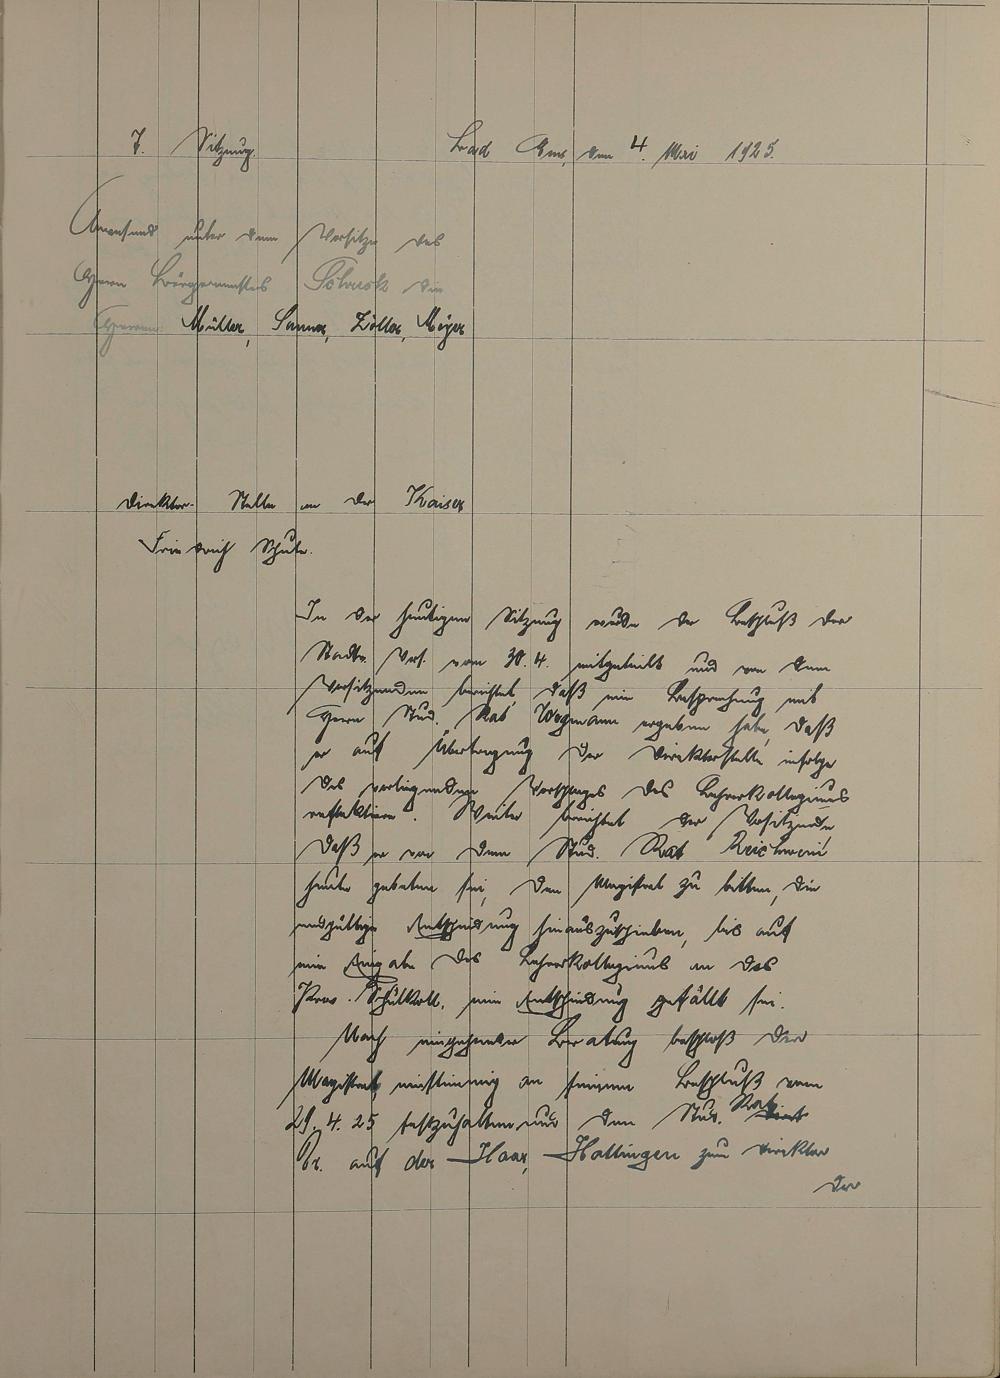 7. Sitzung. Bad Ems, den 4. Mai 1925.
Anwesend unter dem Vorsitze des
Herrn Bürgermeisters die
Herren: Müller, Sanner, Zöller, Meyer
Direktor-Stelle an der Kaiser
Friedrich Schule.
In der heutigen Sitzung wurde der Beschluß der
Stadtv. Vers. vom 30.4. mitgeteilt und von dem
Vorsitzenden berichtet, daß eine Besprechung mit
Herrn Stud. Rat Wegmann ergeben habe, daß
er auf Übertragung der Direktorstelle infolge
des vorliegenden Vorschlages des Lehrerkollegiums
reflektiere. Weiter berichtet der Vorsitzende,
daß er von dem Stud. Rat
heute gebeten sei, den Magistrat zu bitten, die
endgültige Entscheidung hinauszuschieben, bis auf
eine Eingabe des Lehrerkollegiums an das
Prov. Schulkoll. eine Entscheidung gefällt sei.
Nach eingehender Beratung beschloß der
Magistrat, einstimmig an seinem Beschluß vom
29.4.25 festzuhalten und den Stud. Rat
Dr. auf der Haar, Hattingen zum Direktor
der